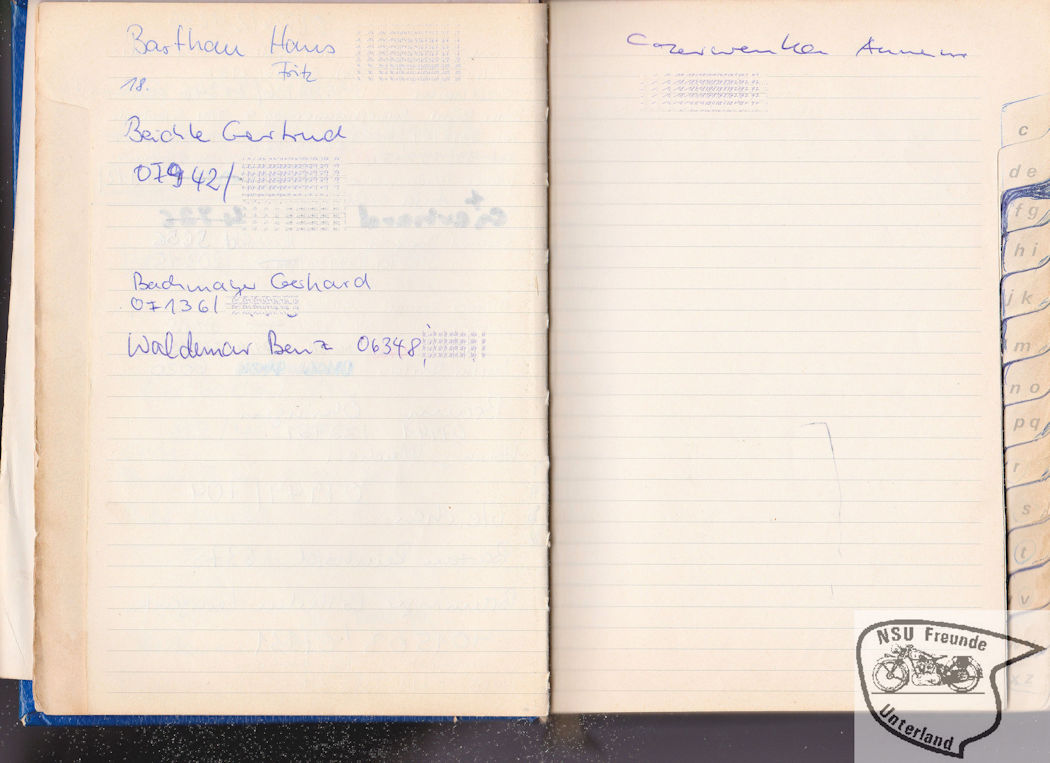 Barthau Hans
Fritz
18.
Beichle Gertrud
07942/
Bachmayer Gerhard
07136/
Waldemar Benz 06348
Czerwenka
c
de
fg
hi
jk
m
no
pq
r
s
t
v
xz
NSU Freunde
Unterland